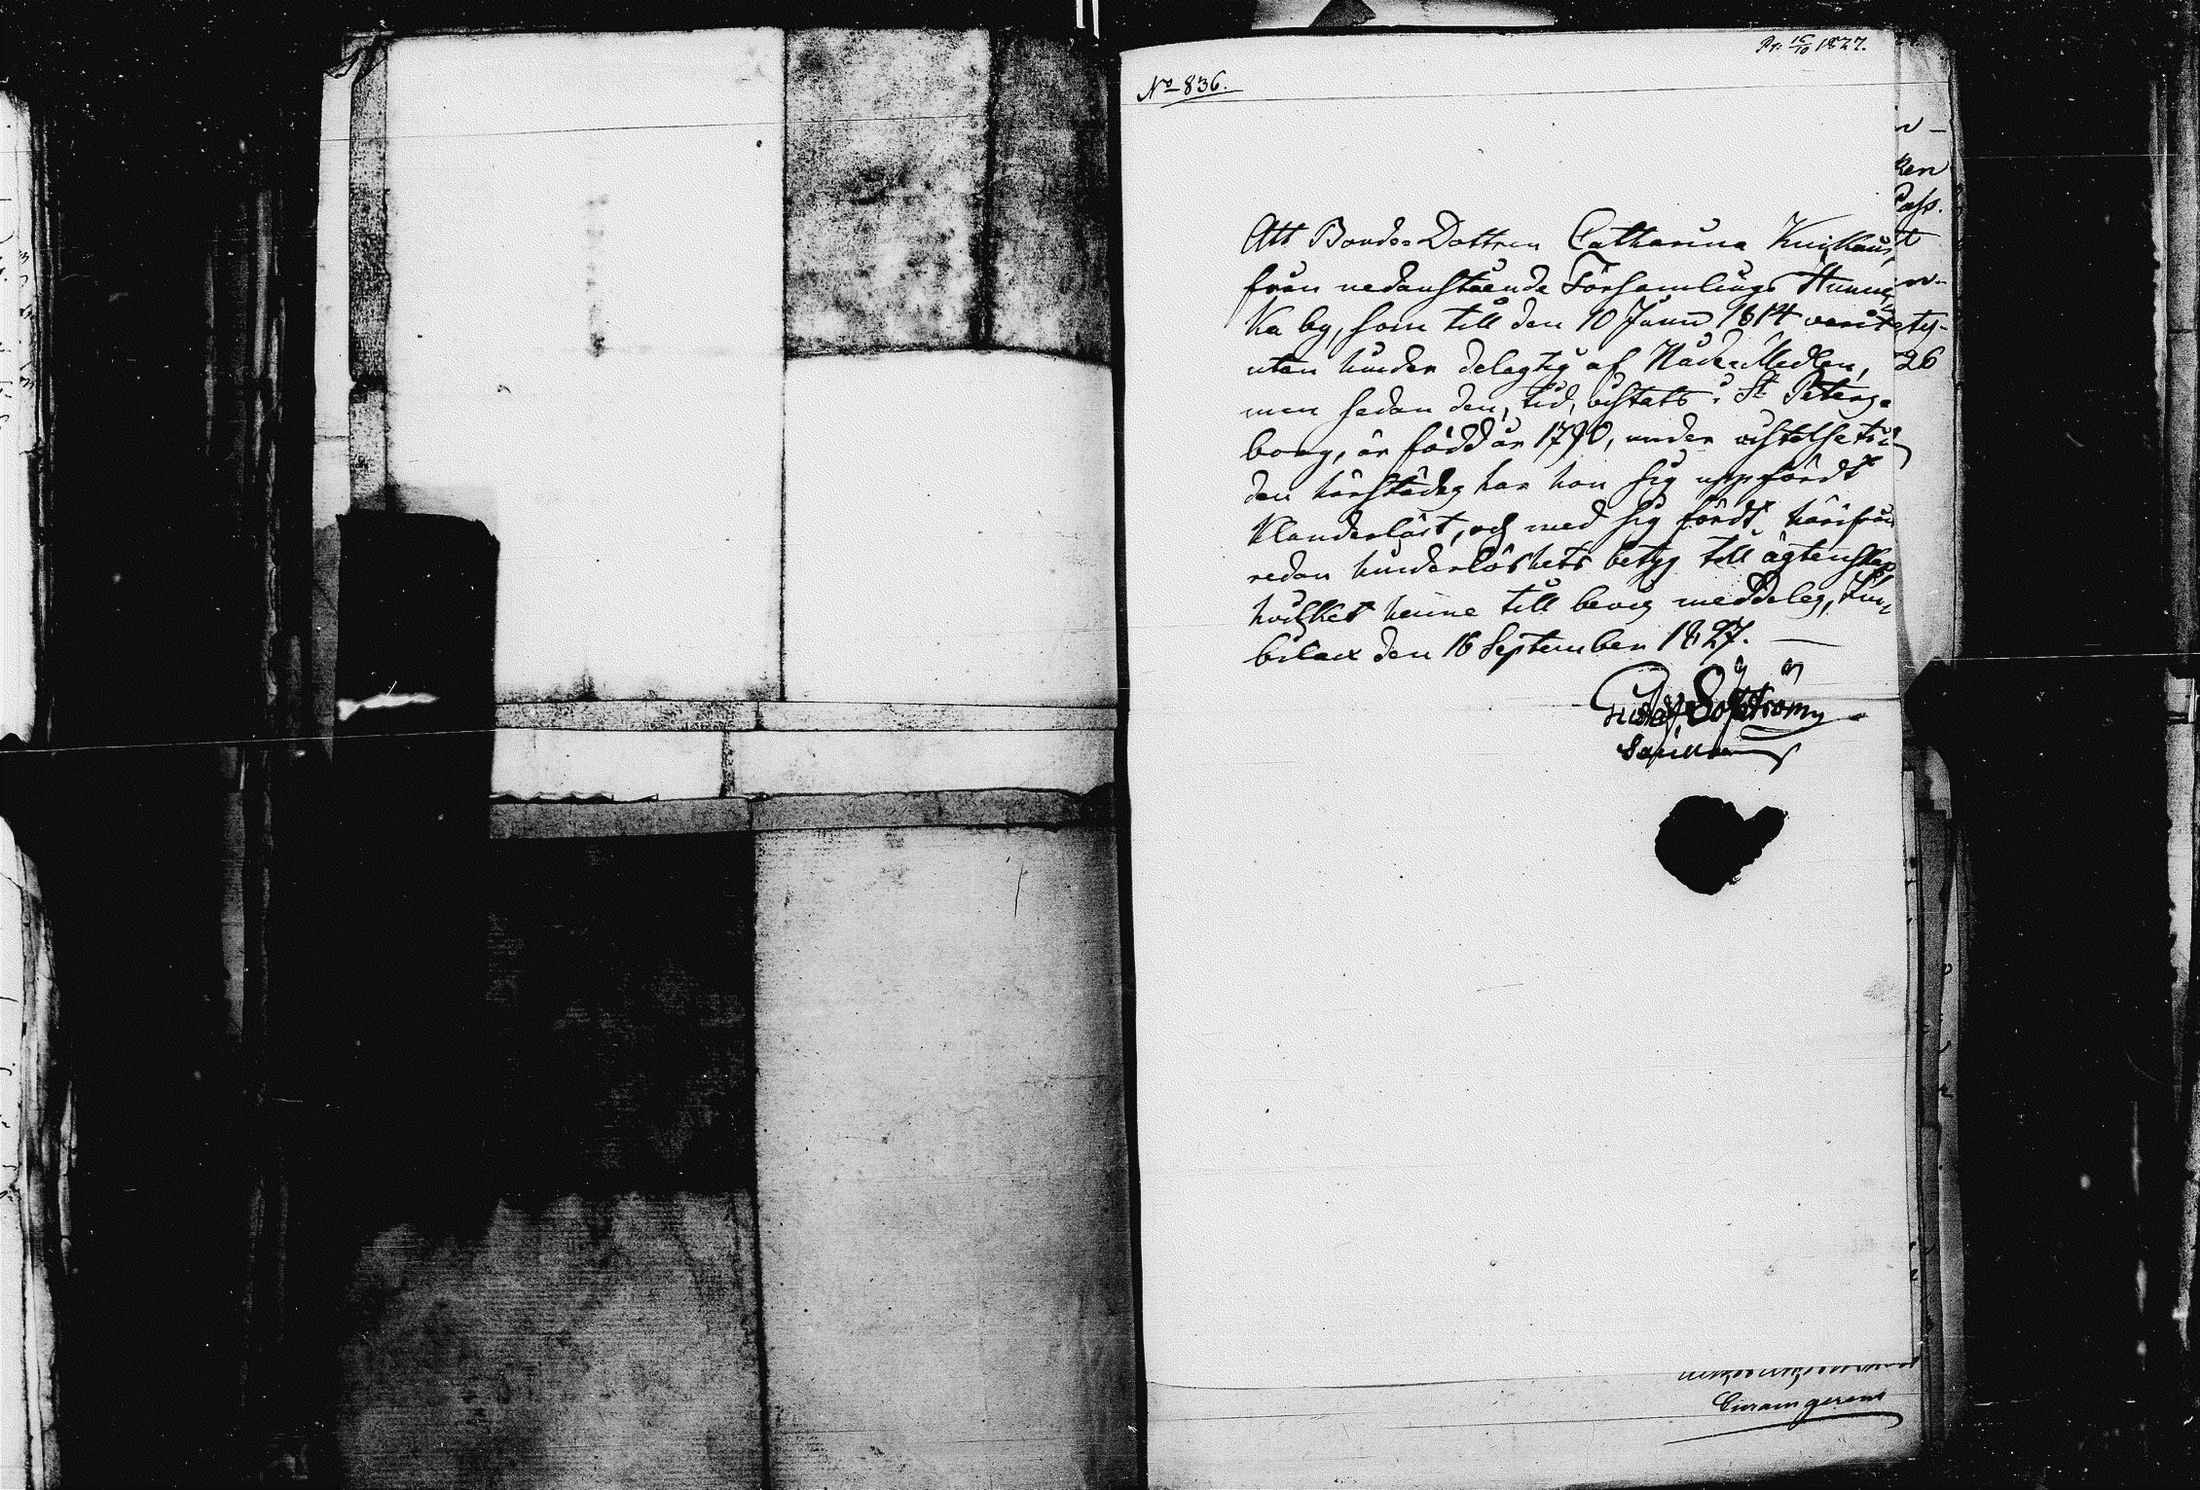 Pr. 15/10 1827.
No 836.
Att Bonde Dottren Catharina
från nedanstående Församlings
Ka by, som till den 10 Junii 1814 varit
utan hinder delagtig af Nåde Medlen,
men sedan den tid, vistats i St Peters-
borg, är född år 1790, under vistelseti-
den härstädes har hon sig uppfördt
Klanderlöst, och med sig fördt härifrån
redan hinderlöshets betyg till ägtenskap
hvilket henne till bevis meddelas, Im-
bilax den 16 September 1827.
Gustaf
Curam gerens